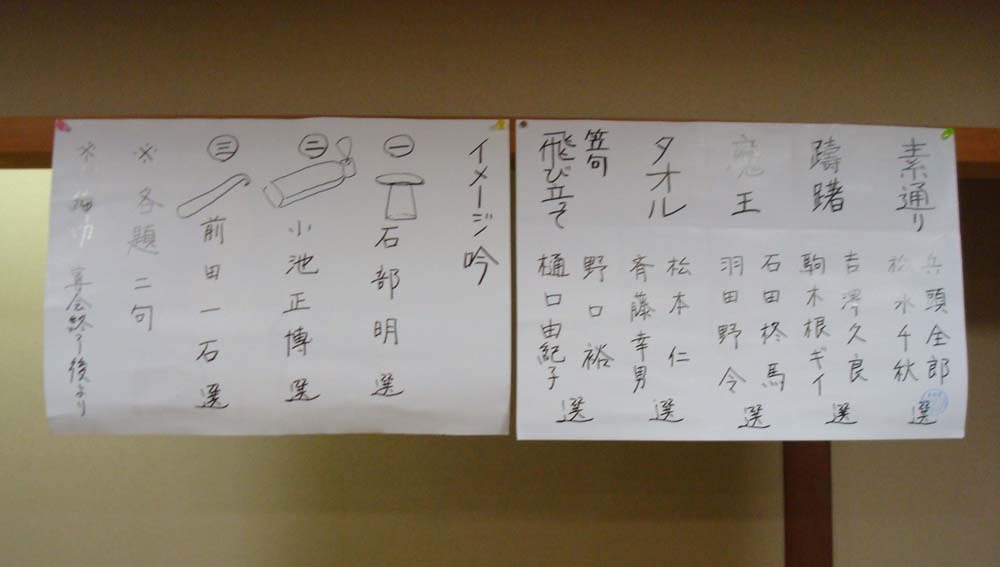 素通り
兵頭全郎
松永千秋
選
躊躇
吉澤久良
駒木根ギイ
選
魔王
石田柊馬
羽田野令
選
タオル
松本仁
斉藤幸男
選
笠句
飛び立て
野口裕
樋口由紀子
選
イメージ吟
㊀ 石部明 選
㊁ 小池正博 選
㊂ 前田一石 選
※各題二句
※ 宴会終了後より